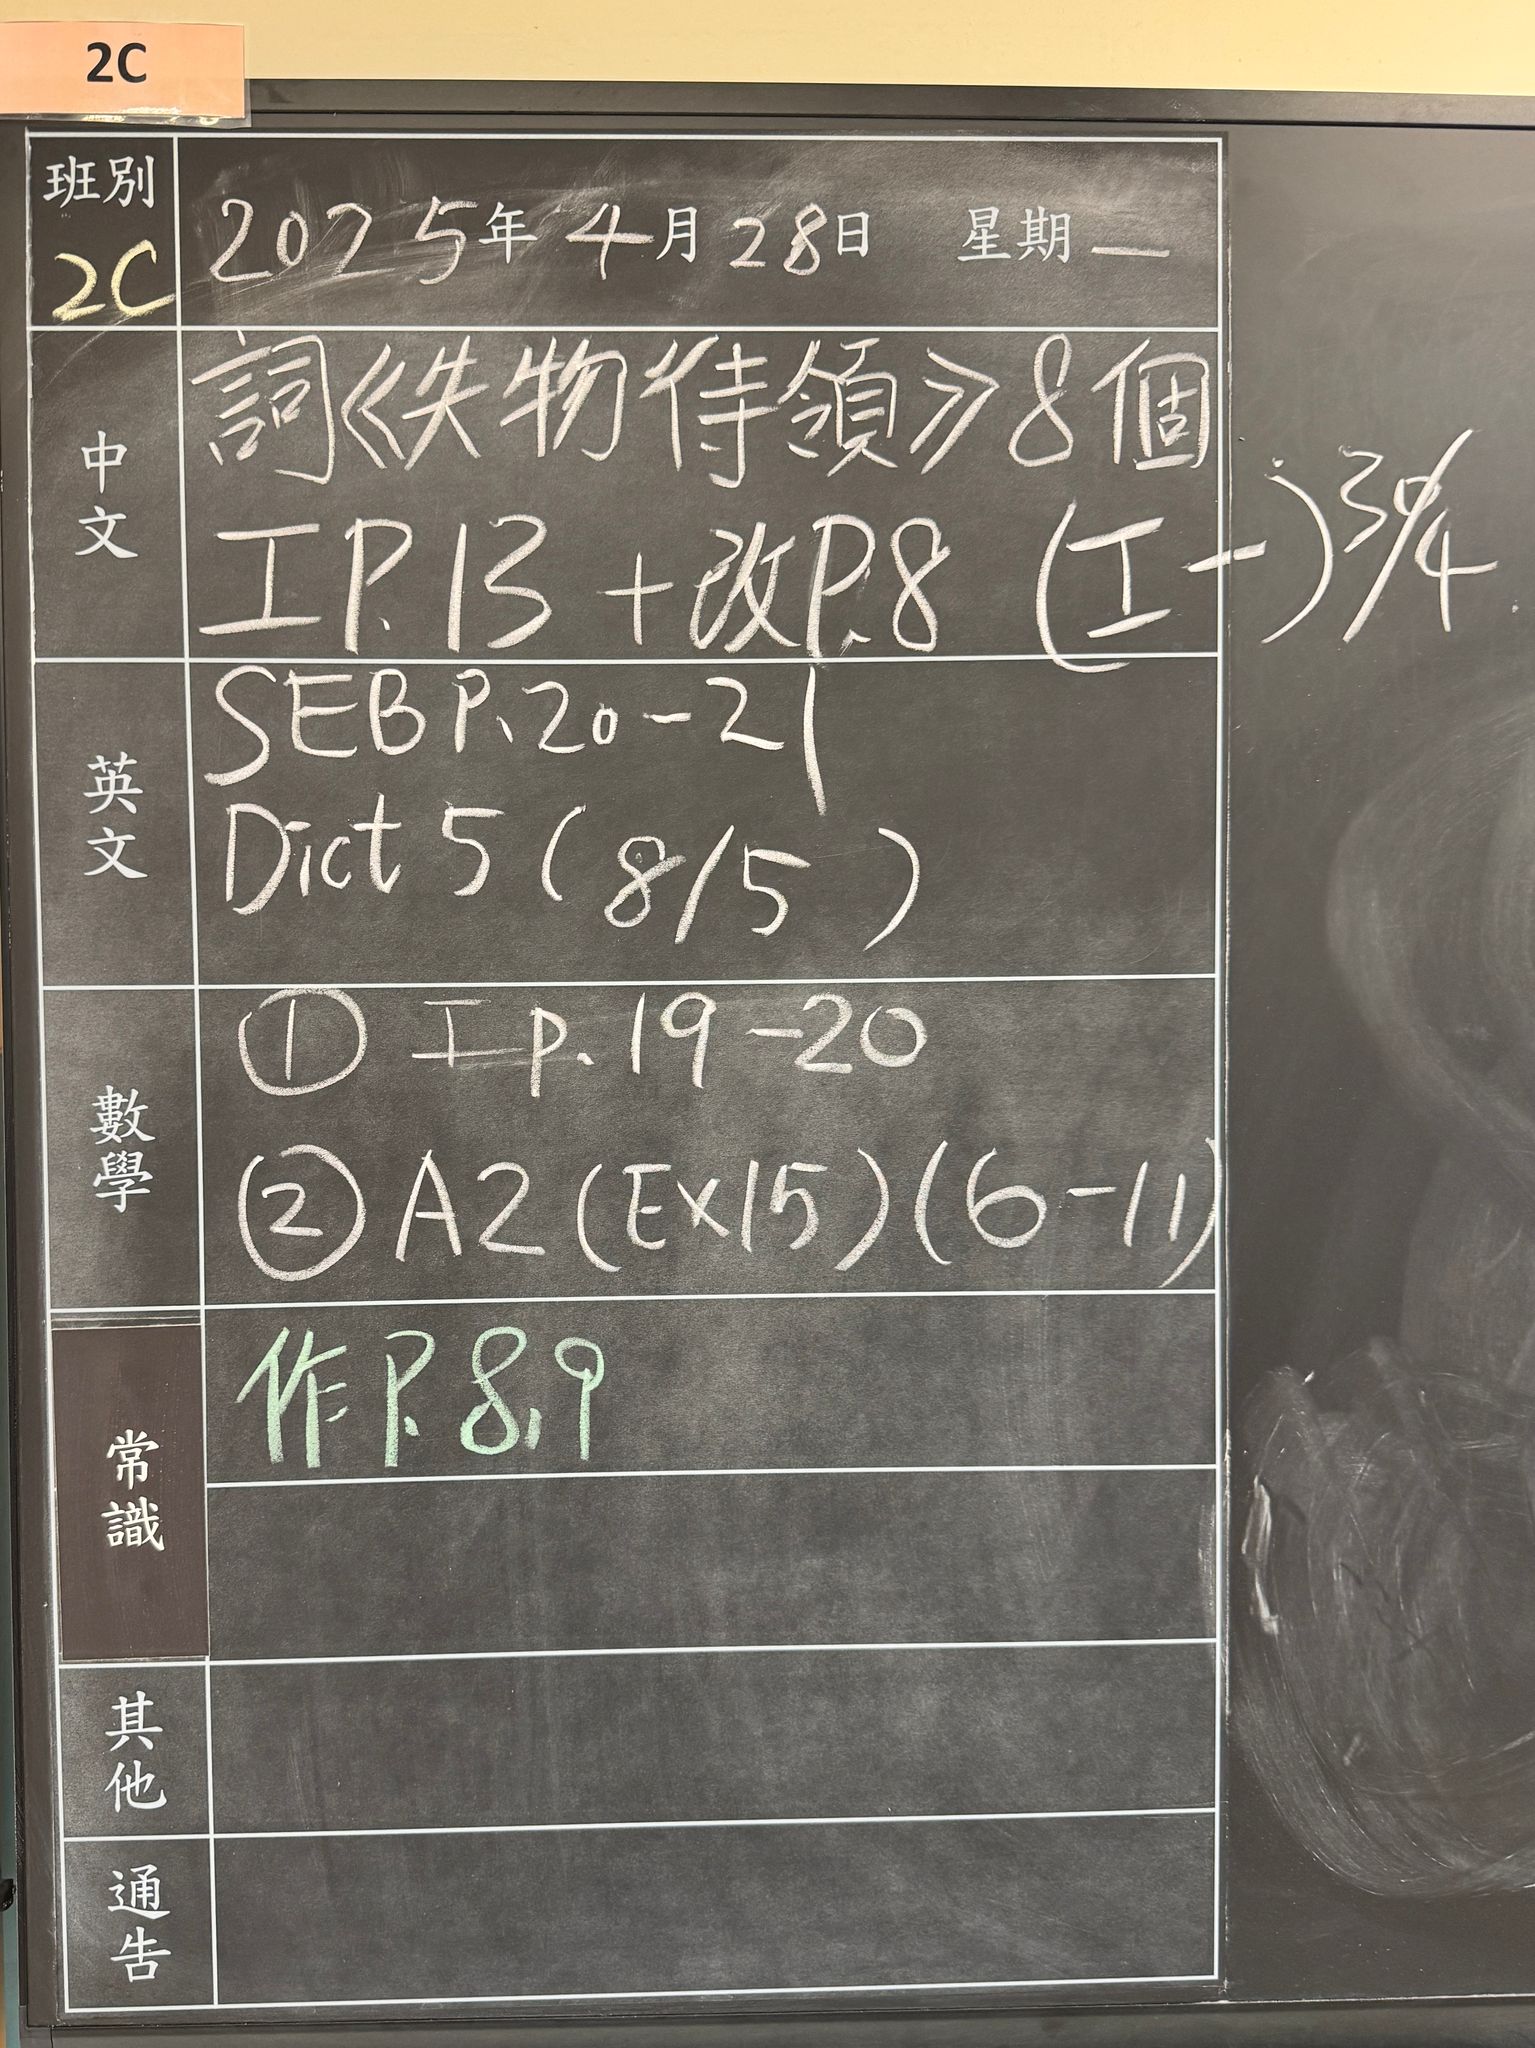 2C
班別
2C
2025年 4月 28日 星期一
中文
詞《失物待領》8個
工P.13 + 改P.8 (工一) 30/4
英文
SEB P.20-21
Dict 5 (8/5)
數學
① 工p.19-20
② A2 (Ex15) (6-11)
常識
作P.8,9
其他
通告